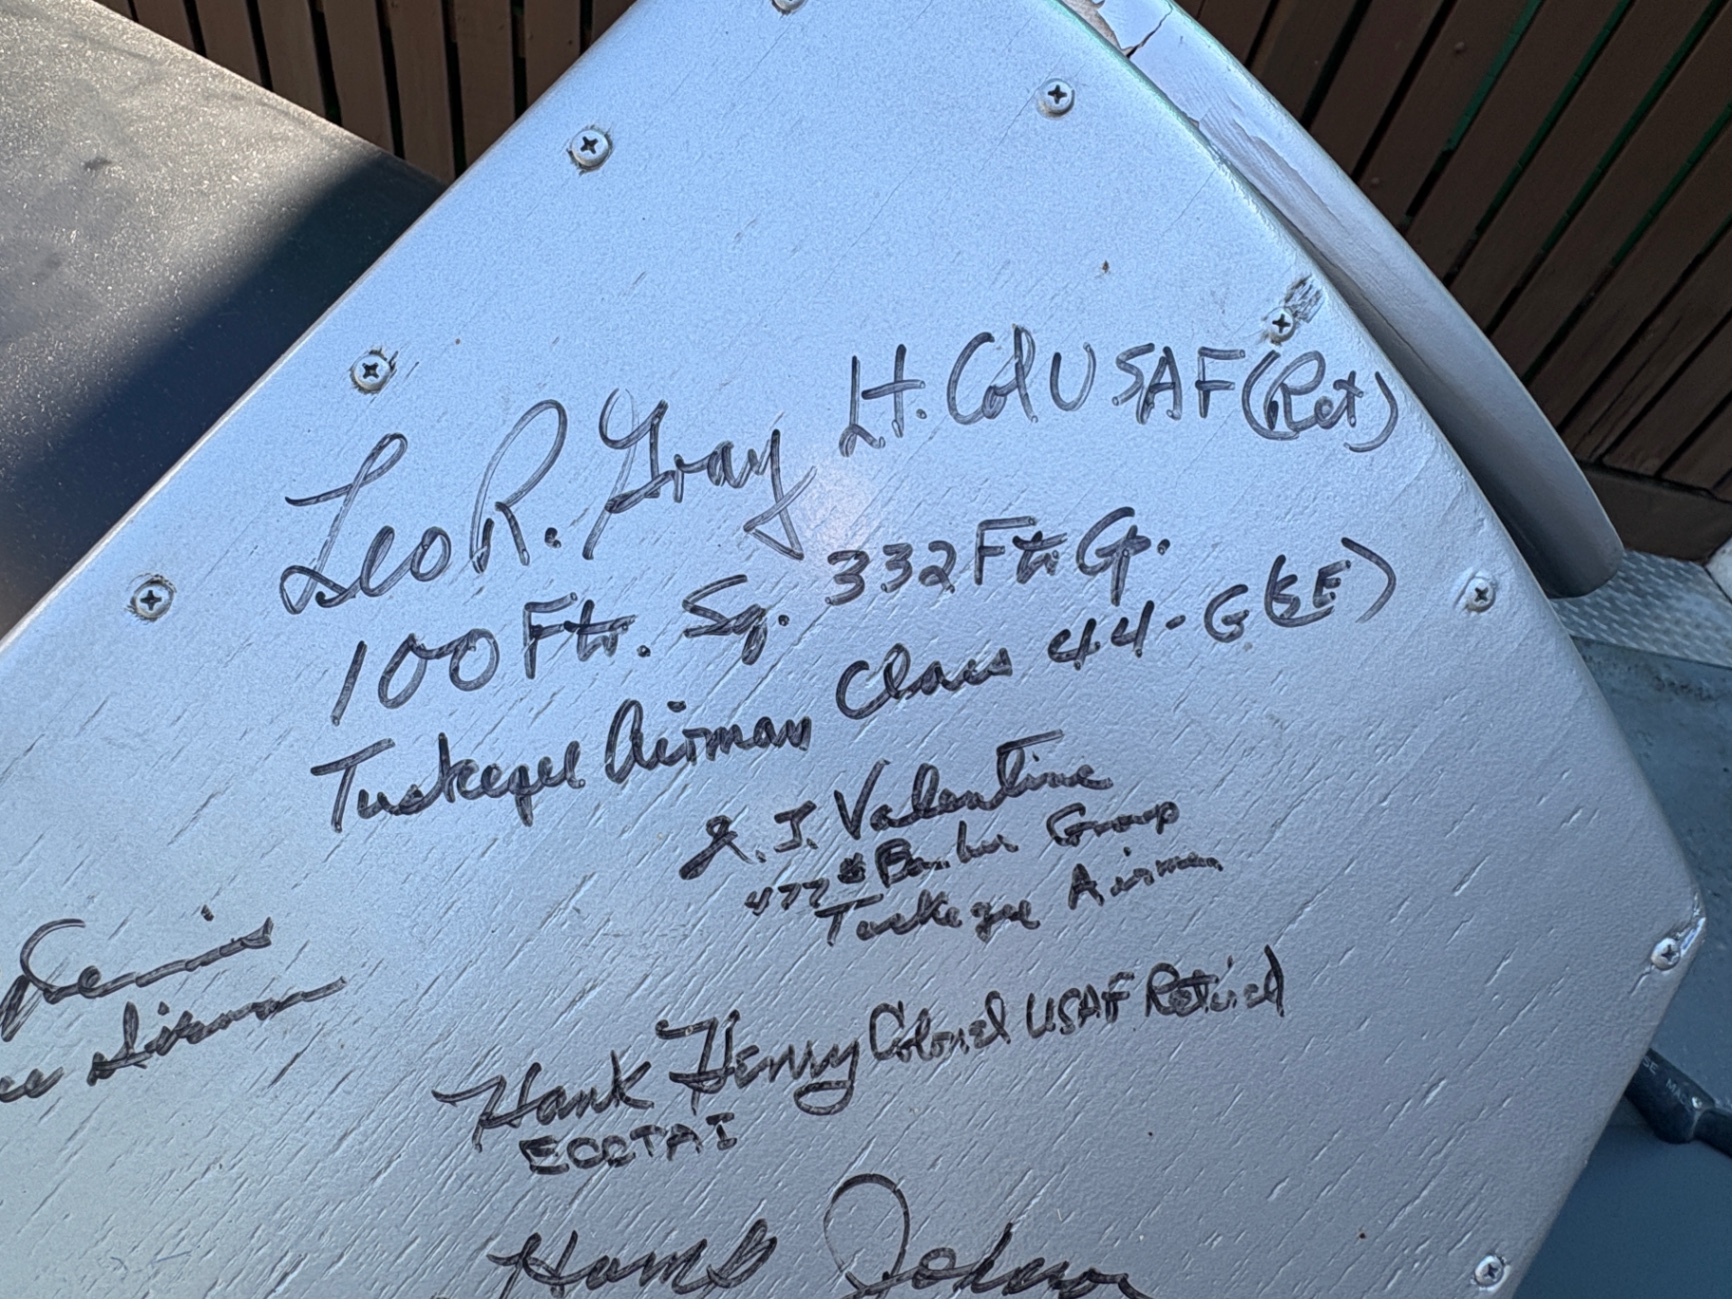 Leo R. Gray Lt. Col USAF (Ret)
100 Ftr. Sq. 332 Ftr. G.
Tuskegee Airman Class 44-G (SE)
J. Valentine
477th Bomber Group
Tuskegee Airmen
Airman
Hank Henry Colonel USAF Retired
ECOTAI
Johnson